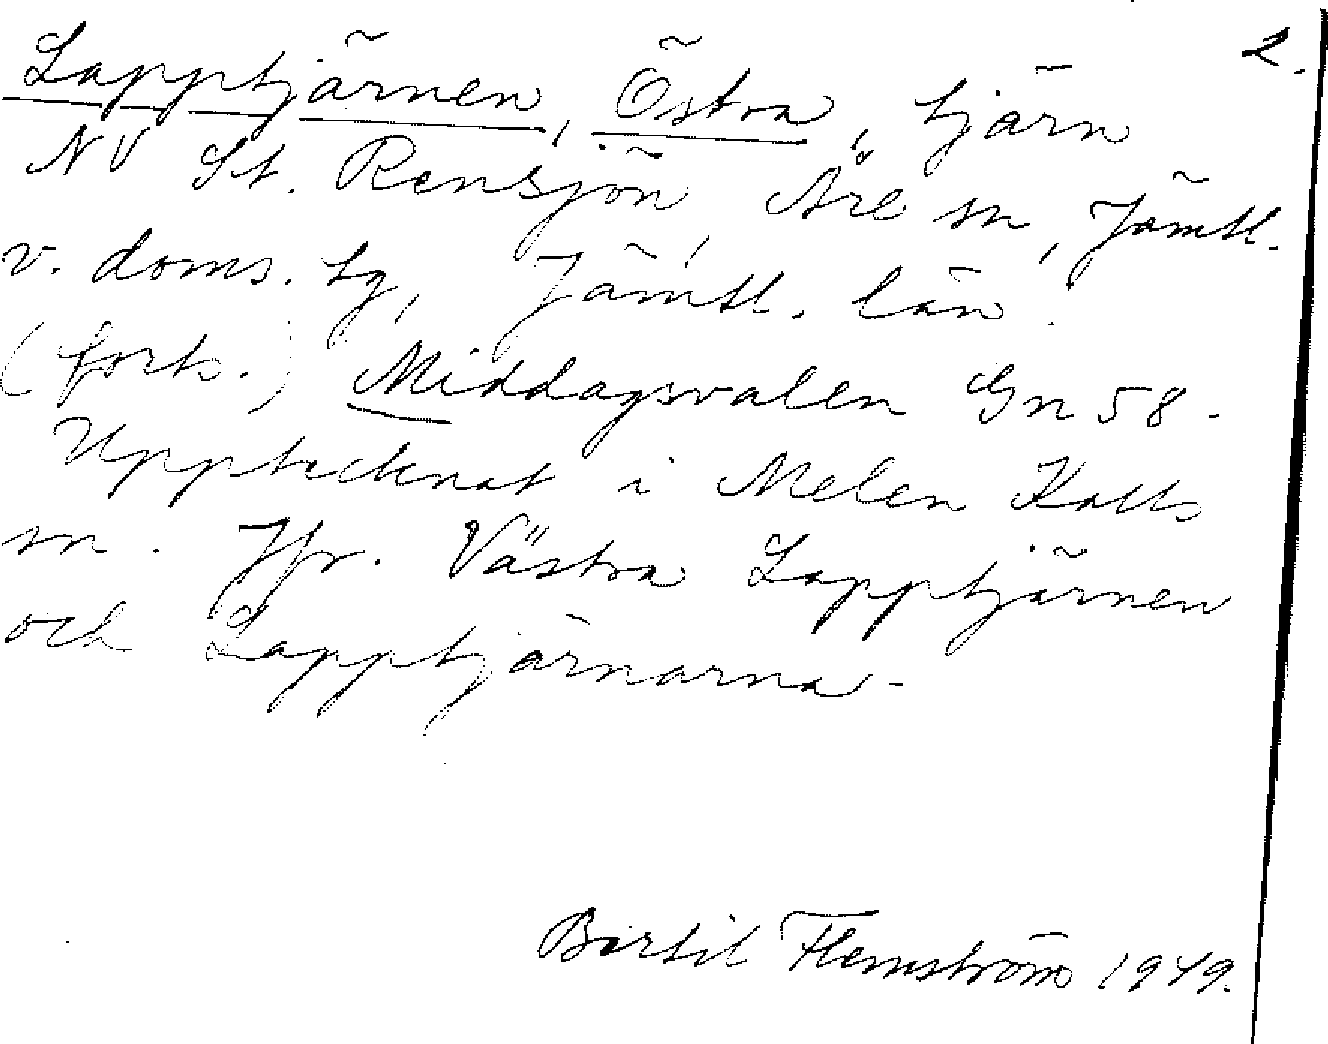 2.
Lapptjärnen, Östra, tjärn
NV St. Rensjön, Åre sn, Jämtl.
v. doms. tg, Jämtl. län.
(forts.) Middagsvalen Gn 58.
Upptecknat i Melen Kalls
sn. Jfr. Västra Lapptjärnen
och Lapptjärnarna.
Bertil Flemström 1949.